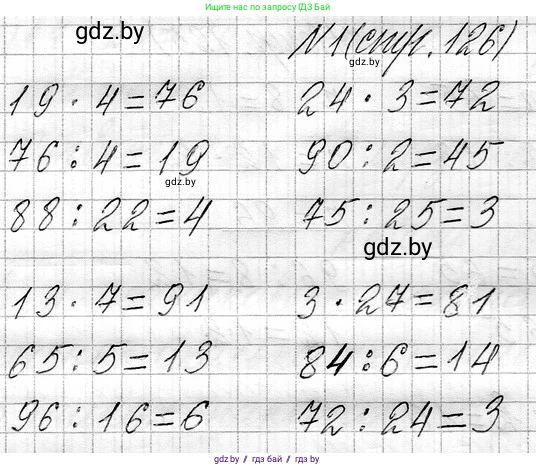 Ищите нас по запросу ГДЗ Бай
gdz.by
N1 (стр. 126)
19 · 4 = 76 24 · 3 = 72
76 : 4 = 19 90 : 2 = 45
gdz.by
88 : 22 = 4 75 : 25 = 3
gdz.by
13 · 7 = 91 3 · 27 = 81
65 : 5 = 13 84 : 6 = 14
96 : 16 = 6 72 : 24 = 3
gdz.by / гдз бай / гдз бу